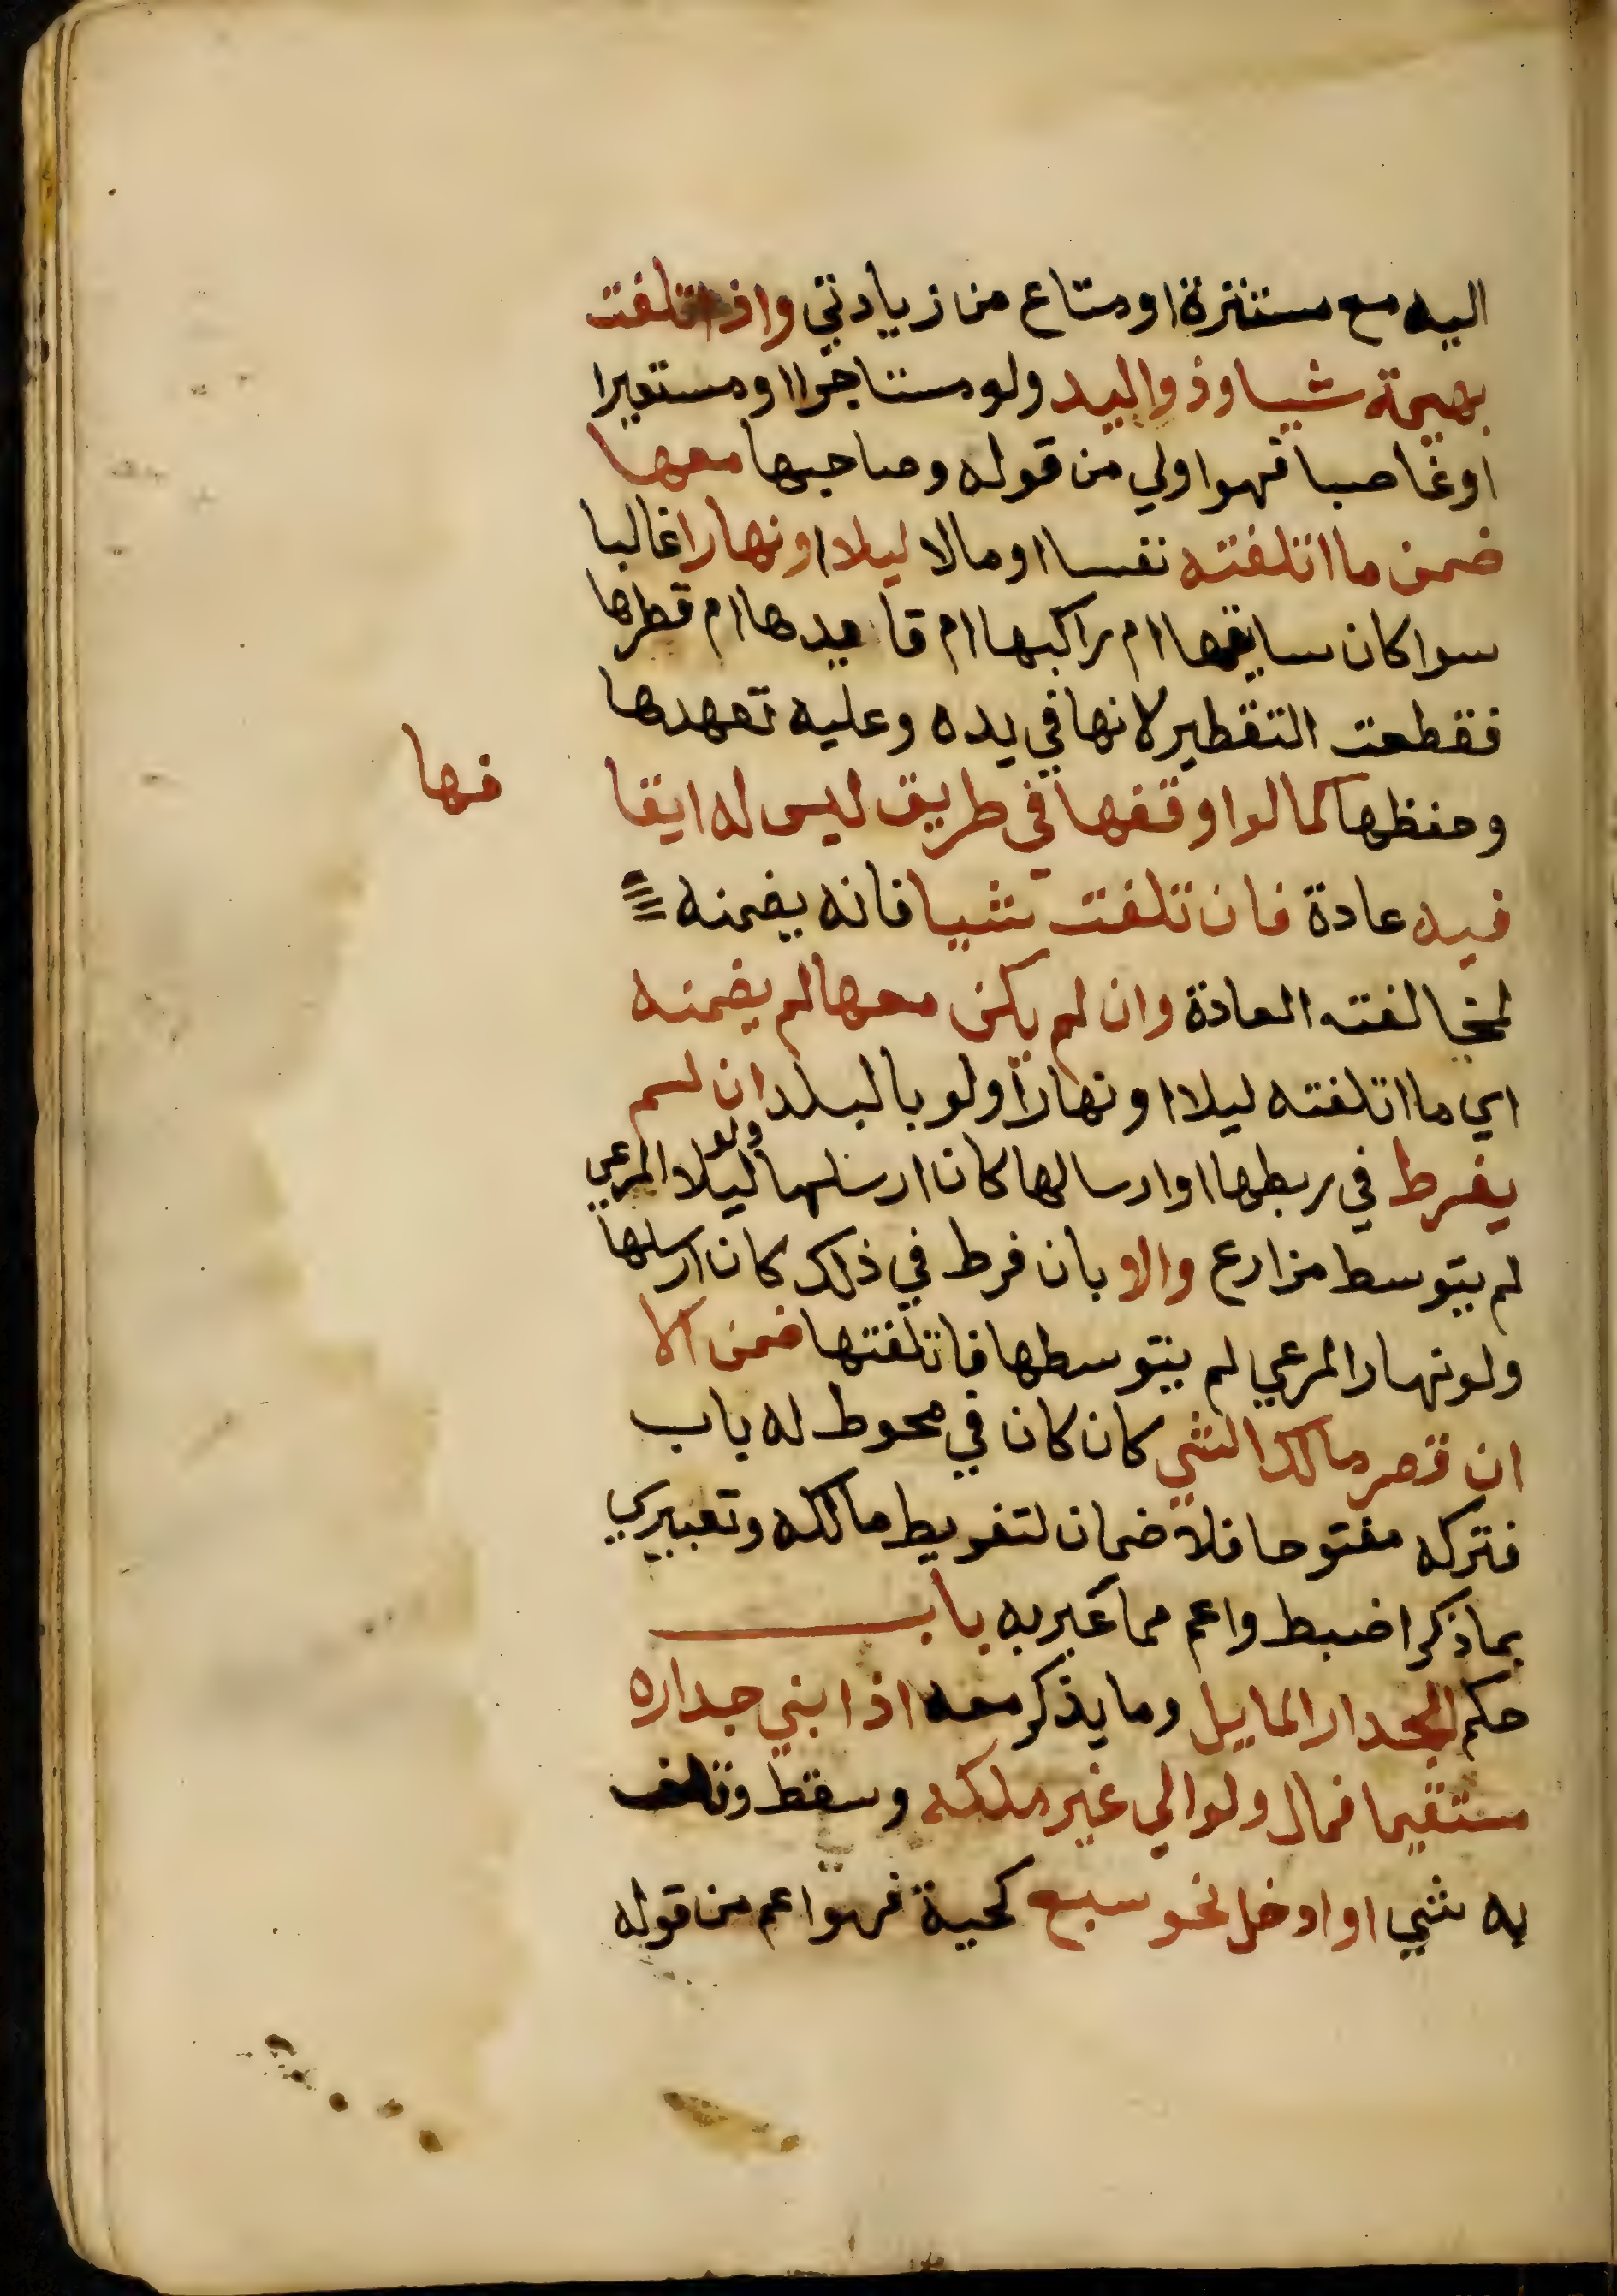 اليه مع مستنزة او متاع من زيادتي واذا تلفت
بهيمة شيا وذو اليد ولو مستاجرا او مستعيرا
او غاصبا فهو اولي من قوله وصاحبها معها
ضمن ما اتلفته نفسا او مالا ليلا او نهارا غالبا
سوا كان سايقها ام راكبها ام قايدها ام قطرها
فقطعت التقطير لانها في يده وعليه تعهدها
وحفظها كما لو اوقفها في طريق ليس له ايقا
فها
فيه عادة فان تلفت شيا فانه يضمنه
لمخالفته العادة وان لم يكن معها لم يضمنه
اي ما اتلفته ليلا او نهارا ولو بالبلد ان لم
يفرط في ربطها او ارسالها كان ارسلها ولو ليلا لمرعي
لم يتوسط مزارع والا بان فرط في ذلك كان ارسلها
ولو نهارا لمرعي لم يتوسطها فاتلفتها ضمن الا
ان قصر مالك الشي كان كان في محوط له باب
فتركه مفتوحا فلا ضمان لتفريط مالكه وتعبيري
بما ذكر اضبط واعم مما عبر به باب
حكم الجدار المايل وما يذكر معه اذا بني جداره
مستقيما فمال ولو الي غير ملكه وسقط وتلف
به شي او ادخل نحو سبع كحية فهو اعم من قوله